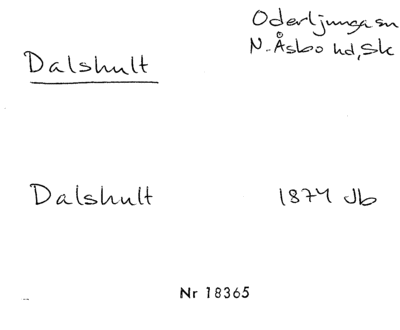 Oderljunga sn
N. Åsbo hd, Sk
Dalshult
Dalshult 1874 Jb
Nr 18365